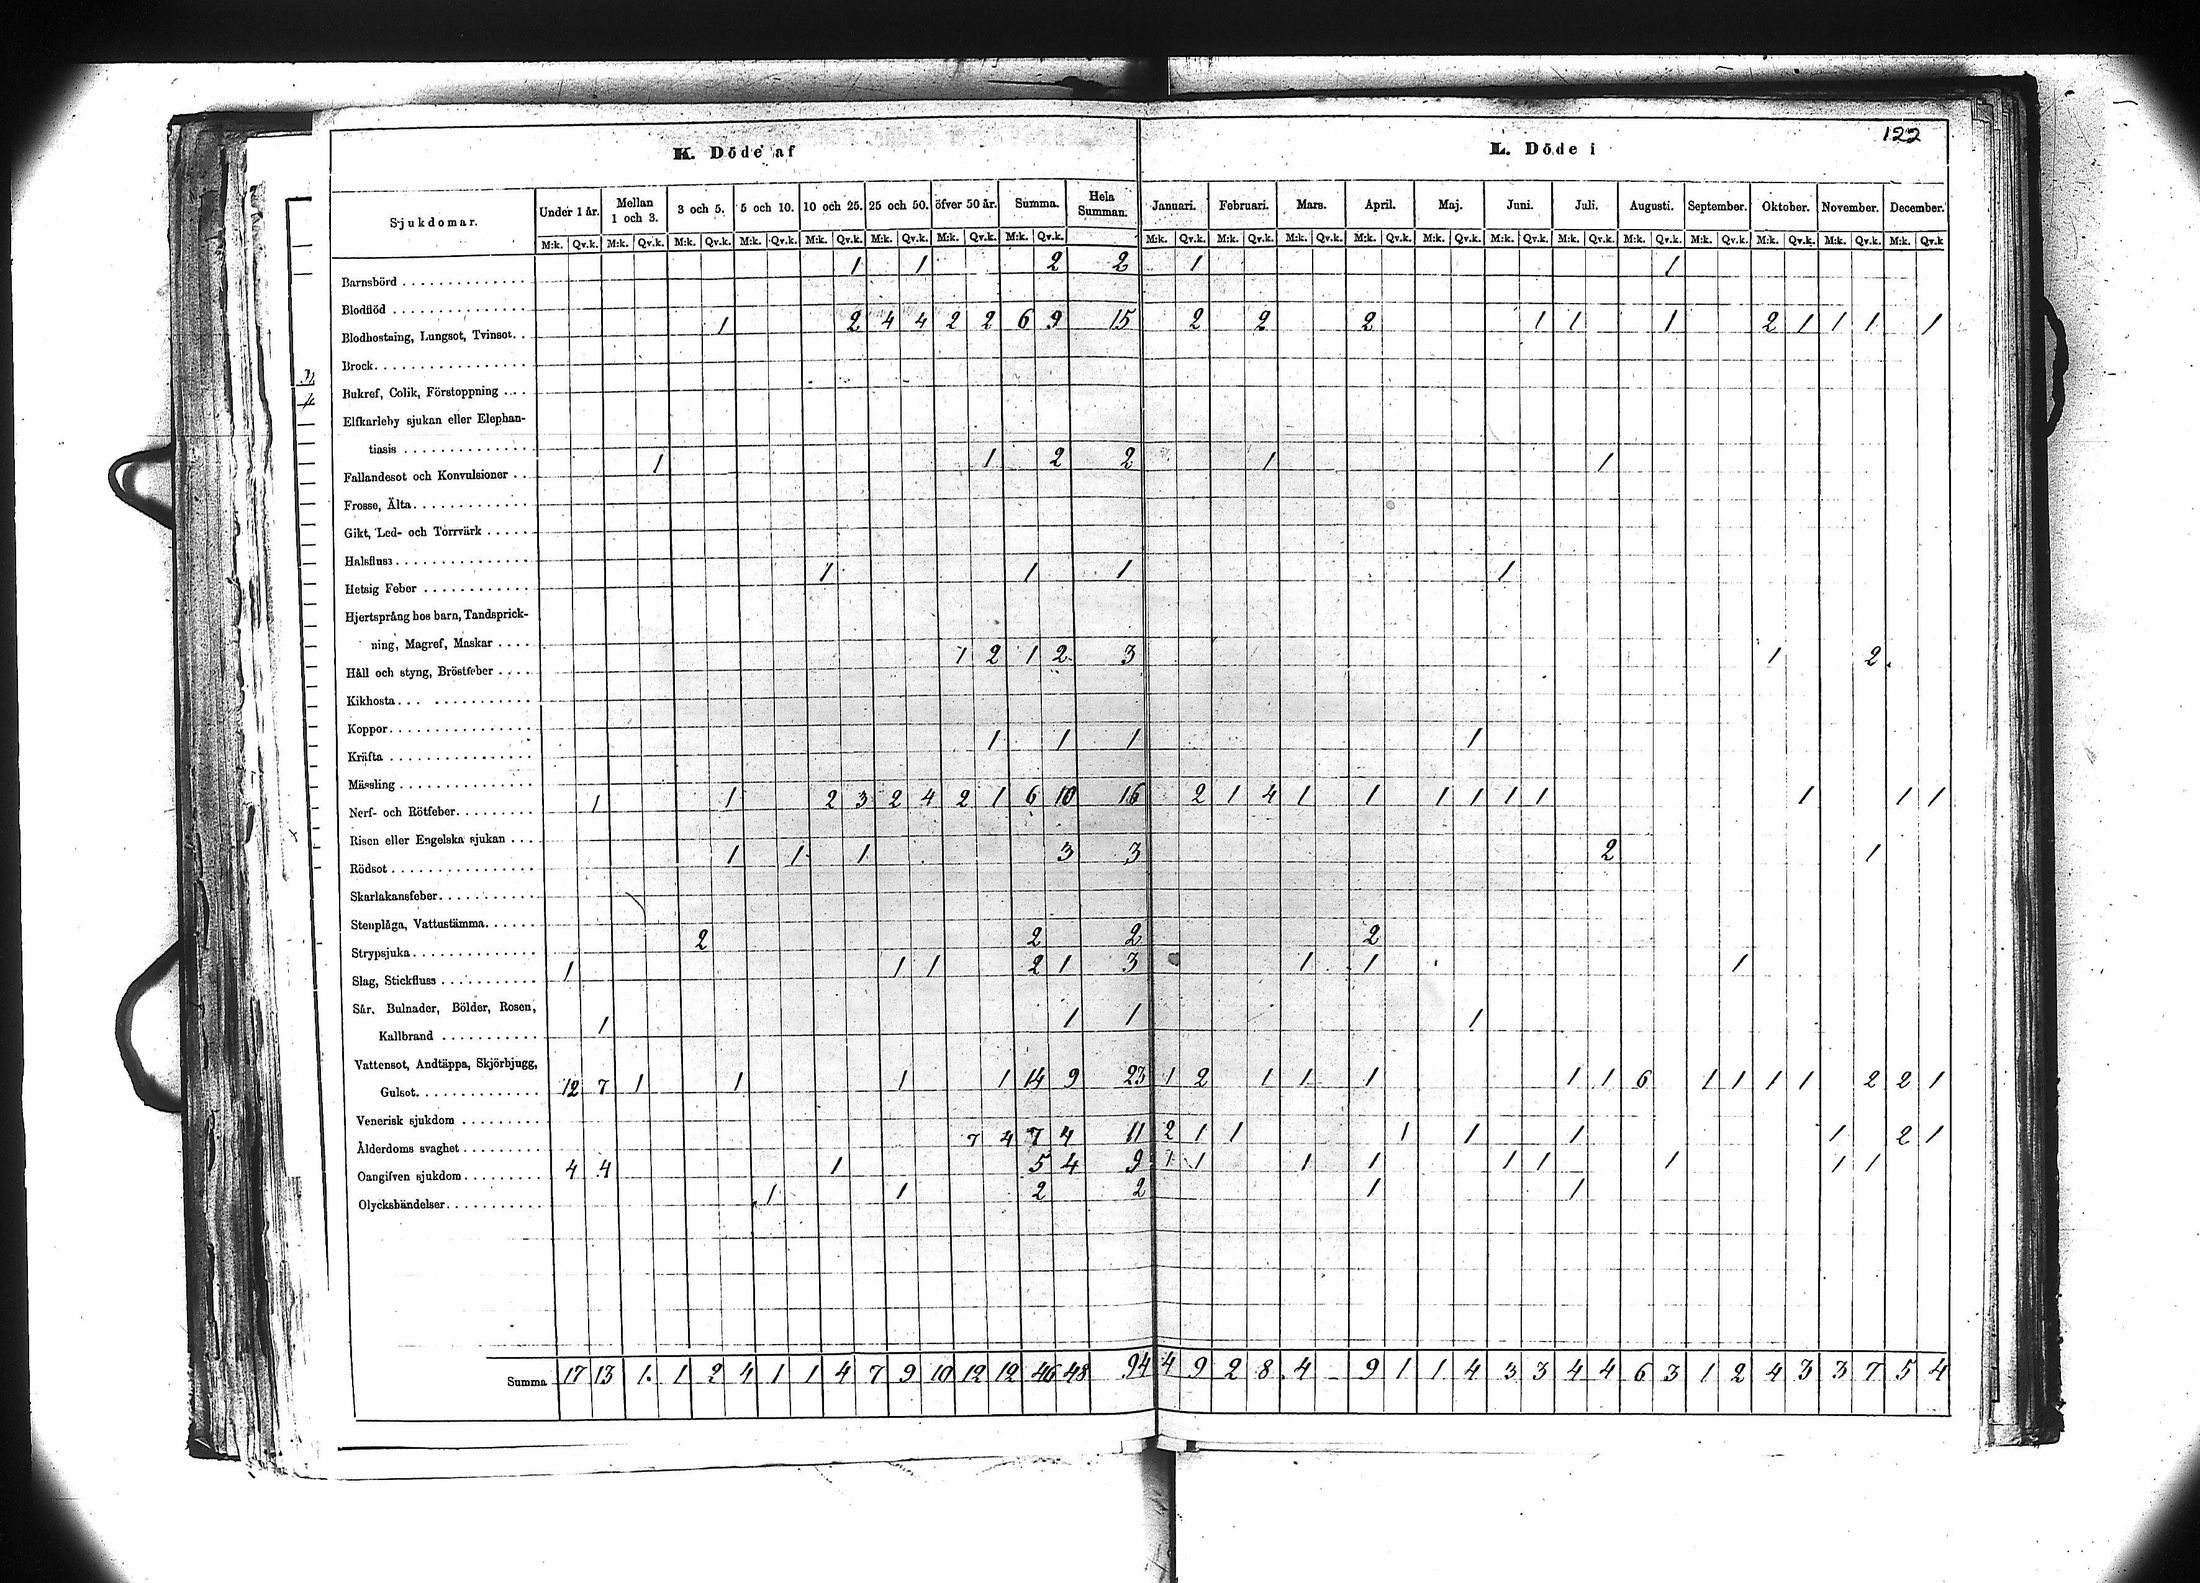 122
K. Döde af
L. Döde i
Sjukdomar. Under 1 år. Mellan 1 och 3. 3 och 5. 5 och 10. 10 och 25. 25 och 50. öfver 50 år. Summa. Hela Summan. Januari. Februari. Mars. April. Maj. Juni. Juli. Augusti. September. Oktober. November. December.
M:k. Qv.k. M:k. Qv.k. M:k. Qv.k. M:k. Qv.k. M:k. Qv.k. M:k. Qv.k. M:k. Qv.k. M:k. Qv.k. M:k. Qv.k. M:k. Qv.k. M:k. Qv.k. M:k. Qv.k. M:k. Qv.k. M:k. Qv.k. M:k. Qv.k. M:k. Qv.k. M:k. Qv.k. M:k. Qv.k. M:k. Qv.k. M:k. Qv.k
Barnsbörd 1 1 2 2 1 1
Blodflöd
Blodhostning, Lungsot, Tvinsot 1 2 4 4 2 2 6 9 15 2 2 2 1 1 1 2 1 1 1 1
Brock
Bukref, Colik, Förstoppning
Elfkarleby sjukan eller Elephan-
tiasis
Fallandesot och Konvulsioner 1 1 2 2 1 1
Frosse, Älta
Gikt, Led- och Torrvärk
Halsfluss
Hetsig Feber 1 1 1 1
Hjertsprång hos barn, Tandsprick-
ning, Magref, Maskar
Håll och styng, Bröstfeber 1 2 1 2 3 1 2
Kikhosta
Koppor
Kräfta 1 1 1 1
Mässling
Nerf- och Rötfeber 1 1 2 3 2 4 2 1 6 10 16 2 1 4 1 1 1 1 1 1 1 1 1
Risen eller Engelska sjukan
Rödsot 1 1 1 3 3 2 1
Skarlakansfeber
Stenplåga, Vattustämma
Strypsjuka 2 2 2 2
Slag, Stickfluss 1 1 1 2 1 3 1 1 1
Sår, Bulnader, Bölder, Rosen,
Kallbrand 1 1 1 1
Vattensot, Andtäppa, Skjörbjugg,
Gulsot 12 7 1 1 1 1 14 9 23 1 2 1 1 1 1 1 6 1 1 1 1 2 2 1
Venerisk sjukdom
Ålderdoms svaghet 7 4 7 4 11 2 1 1 1 1 1 1 2 1
Oangifven sjukdom 4 4 1 5 4 9 1 1 1 1 1 1 1 1 1
Olyckshändelser 1 1 2 2 1 1
Summa 17 13 1 1 2 4 1 1 4 7 9 10 12 12 46 48 94 4 9 2 8 4 9 1 1 4 3 3 4 4 6 3 1 2 4 3 3 7 5 4